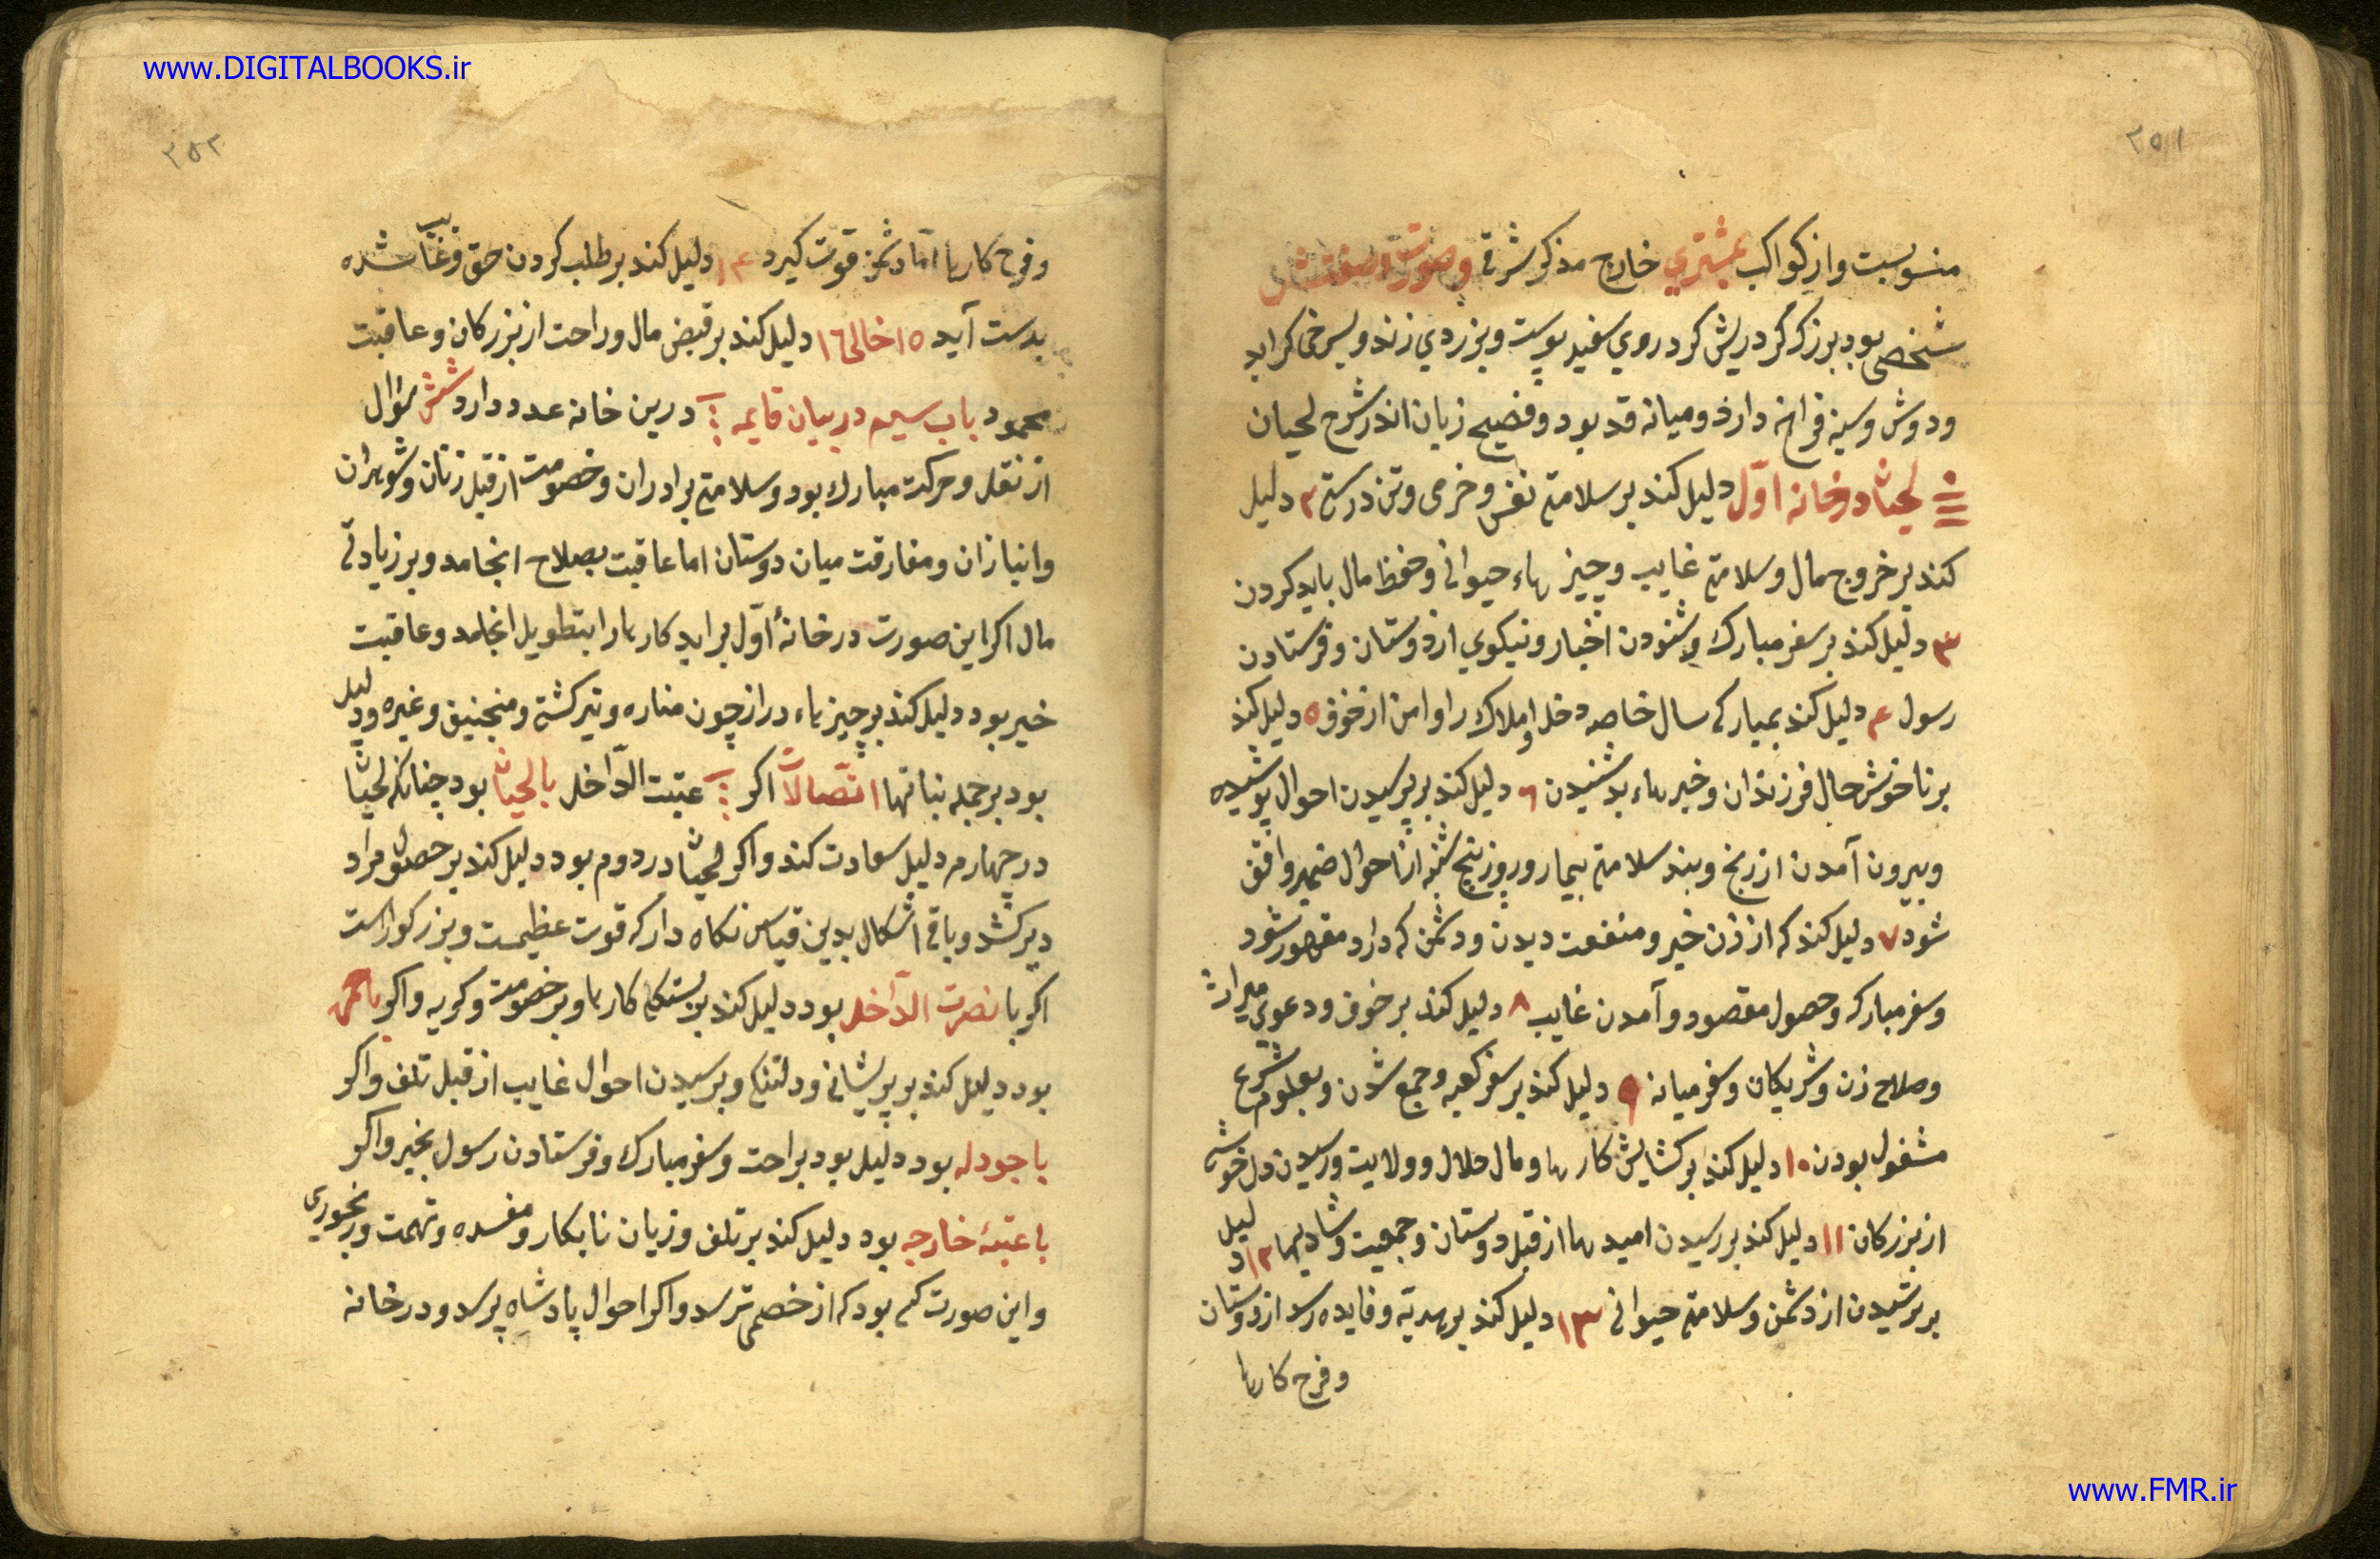 www.DIGITALBOOKS.ir
۳۵۱
منسوبست واز کواکب بمشتری خارج مذکر شرقی وصورت
شخصی بود بزرک کرد ریش کرد روی سفید پوست وبزردی زند وبسرخی کراید
ودوش وسینه فراخ دارد ومیانه قد بود وفصیح زبان اندر شرح لحیان
لحیان در خانه اول دلیل کند بر سلامتی نفس وخرمی وتن درستی ۲ دلیل
کند بر خروج مال وسلامتی غایب وچیز هاء حیوانی وحفظ مال باید کردن
۳ دلیل کند بر سفر مبارک وشنودن اخبار ونیکوی از دوستان وفرستادن
رسول ۴ دلیل کند بمبارکی سال خاصه دخل واملاک را وامن از خوف ۵ دلیل کند
بر ناخوش حال فرزندان وخبر هاء بد شنیدن ۶ دلیل کند بر پرسیدن احوال پوشیده
وبیرون آمدن از رنج وبند سلامتی بیمار وروز پنج شنبه از احوال ضمیر واقف
شود ۷ دلیل کند که از زن خیر ومنفعت دیدن ودشمن که دارد مقهور شود
وسفر مبارکه وحصول مقصود وآمدن غایب ۸ دلیل کند بر خوف ودعوی میراث
وصلاح زن وشریکان وسفر میانه ۹ دلیل کند بر سفر کعبه وجمع شدن وبعلوم شرع
مشغول بودن ۱۰ دلیل کند بر کشایش کار ها ومال حلال وولایت ورسیدن دل خوشی
از بزرکان ۱۱ دلیل کند بر رسیدن امید ها از قبل دوستان وجمعیت وشادیها ۱۲ دلیل
بر ترسیدن از دشمن وسلامتی حیوانی ۱۳ دلیل کند بر هدیه وفایده رسد از دوستان
وفرح کارها
۳۵۲
وفرح کارها اما دشمن قوت کیرد ۱۴ دلیل کند بر طلب کردن حق وغایب شده
بدست آید ۱۵ خالی ۱۶ دلیل کند بر قبض مال وراحت از بزرکان وعاقبت
محمود باب سیم در بیان قایمه درین خانه عدد دارد شش سؤال
از نقل وحرکت مبارک بود وسلامتی برادران وخصومت از قبل زنان وشوهران
وانبازان ومفارقت میان دوستان اما عاقبت بصلاح انجامد وبر زیادتی
مال اکر این صورت در خانهٔ اول براید کار ها را بتطویل انجامد وعاقبت
خیر بود دلیل کند بر چیز هاء دراز چون مناره وتیر کشتی ومنجنیق وغیره ودلیل
بود بر جمله نباتها اتصالات اکر عتبت الداخل بالحیان بود چنانکه لحیان
در چهارم دلیل سعادت کند واکر لحیان در دوم بود دلیل کند بر حصول مراد
دیر کشد وباقی اشکال بدین قیاس نکاه دار که قوت عظیمست وبزرکوارست
اکر با نصرت الداخل بود دلیل کند بر بستکی کار ها وبر خصومت وکریه واکر
بود دلیل کند بر پریشانی ودلتنکی وپرسیدن احوال غایب از قبل تلف واکر
با جودله بود دلیل بود براحت وسفر مبارک وفرستادن رسول بخیر واکر
با عتبهٔ خارجه بود دلیل کند بر تلف وزیان نابکار ومفسده وتهمت ورنجوری
واین صورت کم بود که از خصمی ترسد واکر احوال پادشاه پرسد ودر خانه
www.FMR.ir